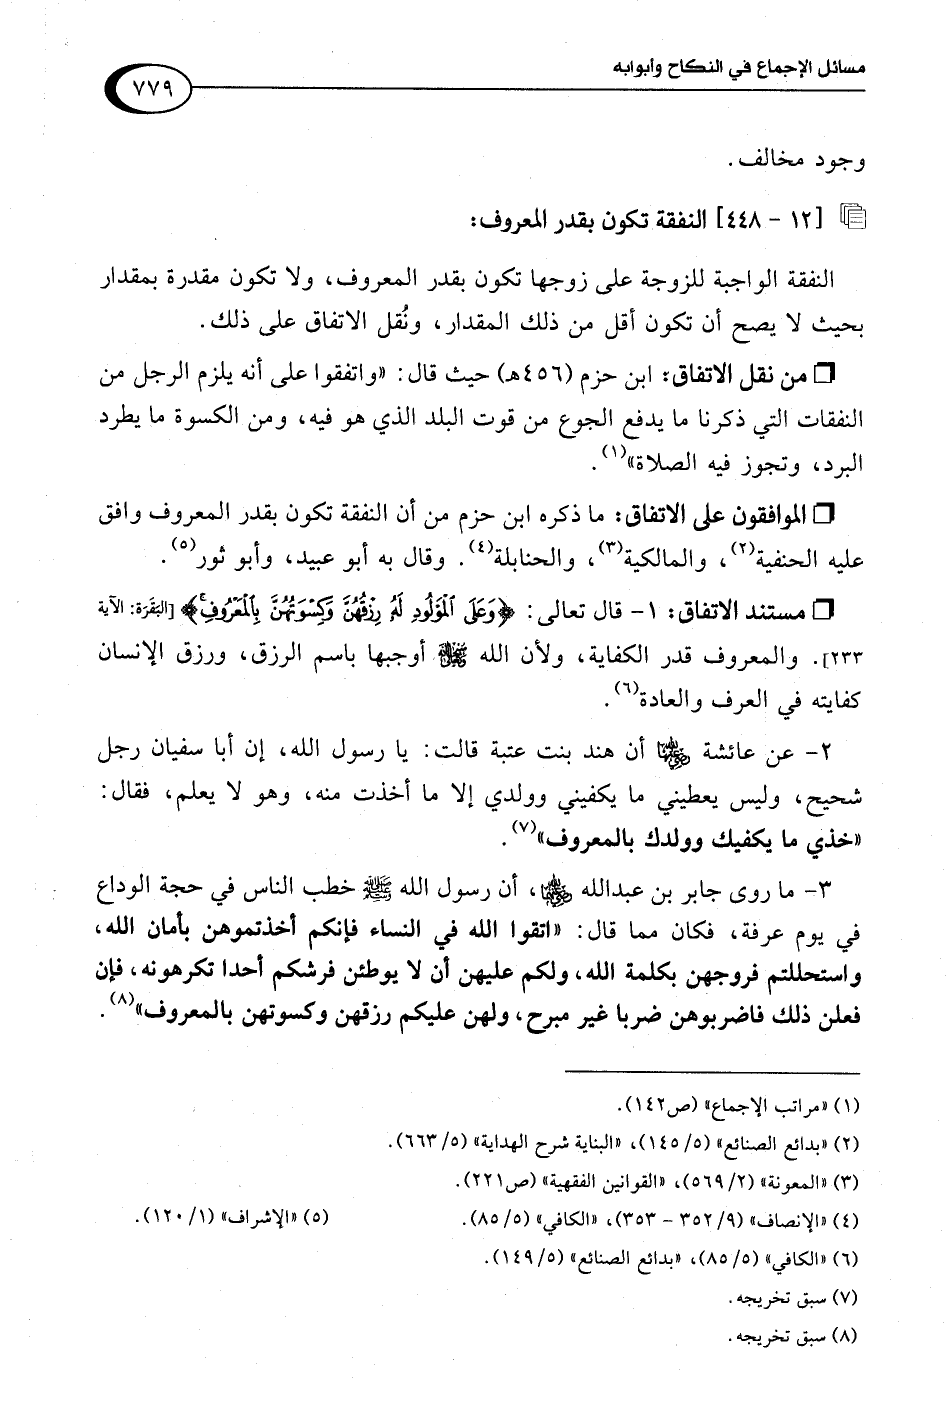 مسائل الإجماع في النكاح وأبوابه
٧٧٩
وجود مخالف.
[١٢ - ٤٤٨] النفقة تكون بقدر المعروف:
النفقة الواجبة للزوجة على زوجها تكون بقدر المعروف، ولا تكون مقدرة بمقدار
بحيث لا يصح أن تكون أقل من ذلك المقدار، ونُقل الاتفاق على ذلك.
❒ من نقل الاتفاق: ابن حزم (٤٥٦هـ) حيث قال: «واتفقوا على أنه يلزم الرجل من
النفقات التي ذكرنا ما يدفع الجوع من قوت البلد الذي هو فيه، ومن الكسوة ما يطرد
البرد، وتجوز فيه الصلاة»(١).
❒ الموافقون على الاتفاق: ما ذكره ابن حزم من أن النفقة تكون بقدر المعروف وافق
عليه الحنفية(٢)، والمالكية(٣)، والحنابلة(٤). وقال به أبو عبيد، وأبو ثور(٥).
❒ مستند الاتفاق: ١- قال تعالى: ﴿وَعَلَى ٱلْمَوْلُودِ لَهُۥ رِزْقُهُنَّ وَكِسْوَتُهُنَّ بِٱلْمَعْرُوفِۚ﴾ [البَقَرَة: الآية
٢٣٣]. والمعروف قدر الكفاية، ولأن الله ﷻ أوجبها باسم الرزق، ورزق الإنسان
كفايته في العرف والعادة(٦).
٢- عن عائشة رضي الله عنها أن هند بنت عتبة قالت: يا رسول الله، إن أبا سفيان رجل
شحيح، وليس يعطيني ما يكفيني وولدي إلا ما أخذت منه، وهو لا يعلم، فقال:
«خذي ما يكفيك وولدك بالمعروف»(٧).
٣- ما روى جابر بن عبدالله رضي الله عنهما، أن رسول الله ﷺ خطب الناس في حجة الوداع
في يوم عرفة، فكان مما قال: «اتقوا الله في النساء فإنكم أخذتموهن بأمان الله،
واستحللتم فروجهن بكلمة الله، ولكم عليهن أن لا يوطئن فرشكم أحدا تكرهونه، فإن
فعلن ذلك فاضربوهن ضربا غير مبرح، ولهن عليكم رزقهن وكسوتهن بالمعروف»(٨).
(١) «مراتب الإجماع» (ص١٤٢).
(٢) «بدائع الصنائع» (٥/ ١٤٥)، «البناية شرح الهداية» (٥/ ٦٦٣).
(٣) «المعونة» (٢/ ٥٦٩)، «القوانين الفقهية» (ص٢٢١).
(٤) «الإنصاف» (٩/ ٣٥٢ - ٣٥٣)، «الكافي» (٥/ ٨٥). (٥) «الإشراف» (١/ ١٢٠).
(٦) «الكافي» (٥/ ٨٥)، «بدائع الصنائع» (٥/ ١٤٩).
(٧) سبق تخريجه.
(٨) سبق تخريجه.